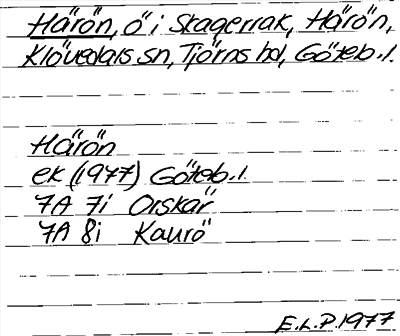 Härön, ö i Skagerrak, Härön,
Klövedals sn, Tjörns hd, Göteb. l.
Härön
ek (1977) Göteb. l.
7A 7i Orskär
7A 8i Kaurö
E.L.P. 1977